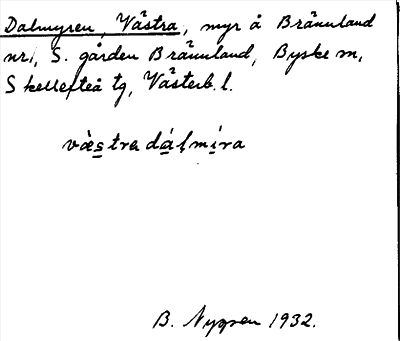 Dalmyren, Västra, myr å Brännland
nr 1, S. gården Brännland, Byske sn,
Skellefteå tg, Västerb. l.
vä̀stra dálmira
B. Nygren 1932.